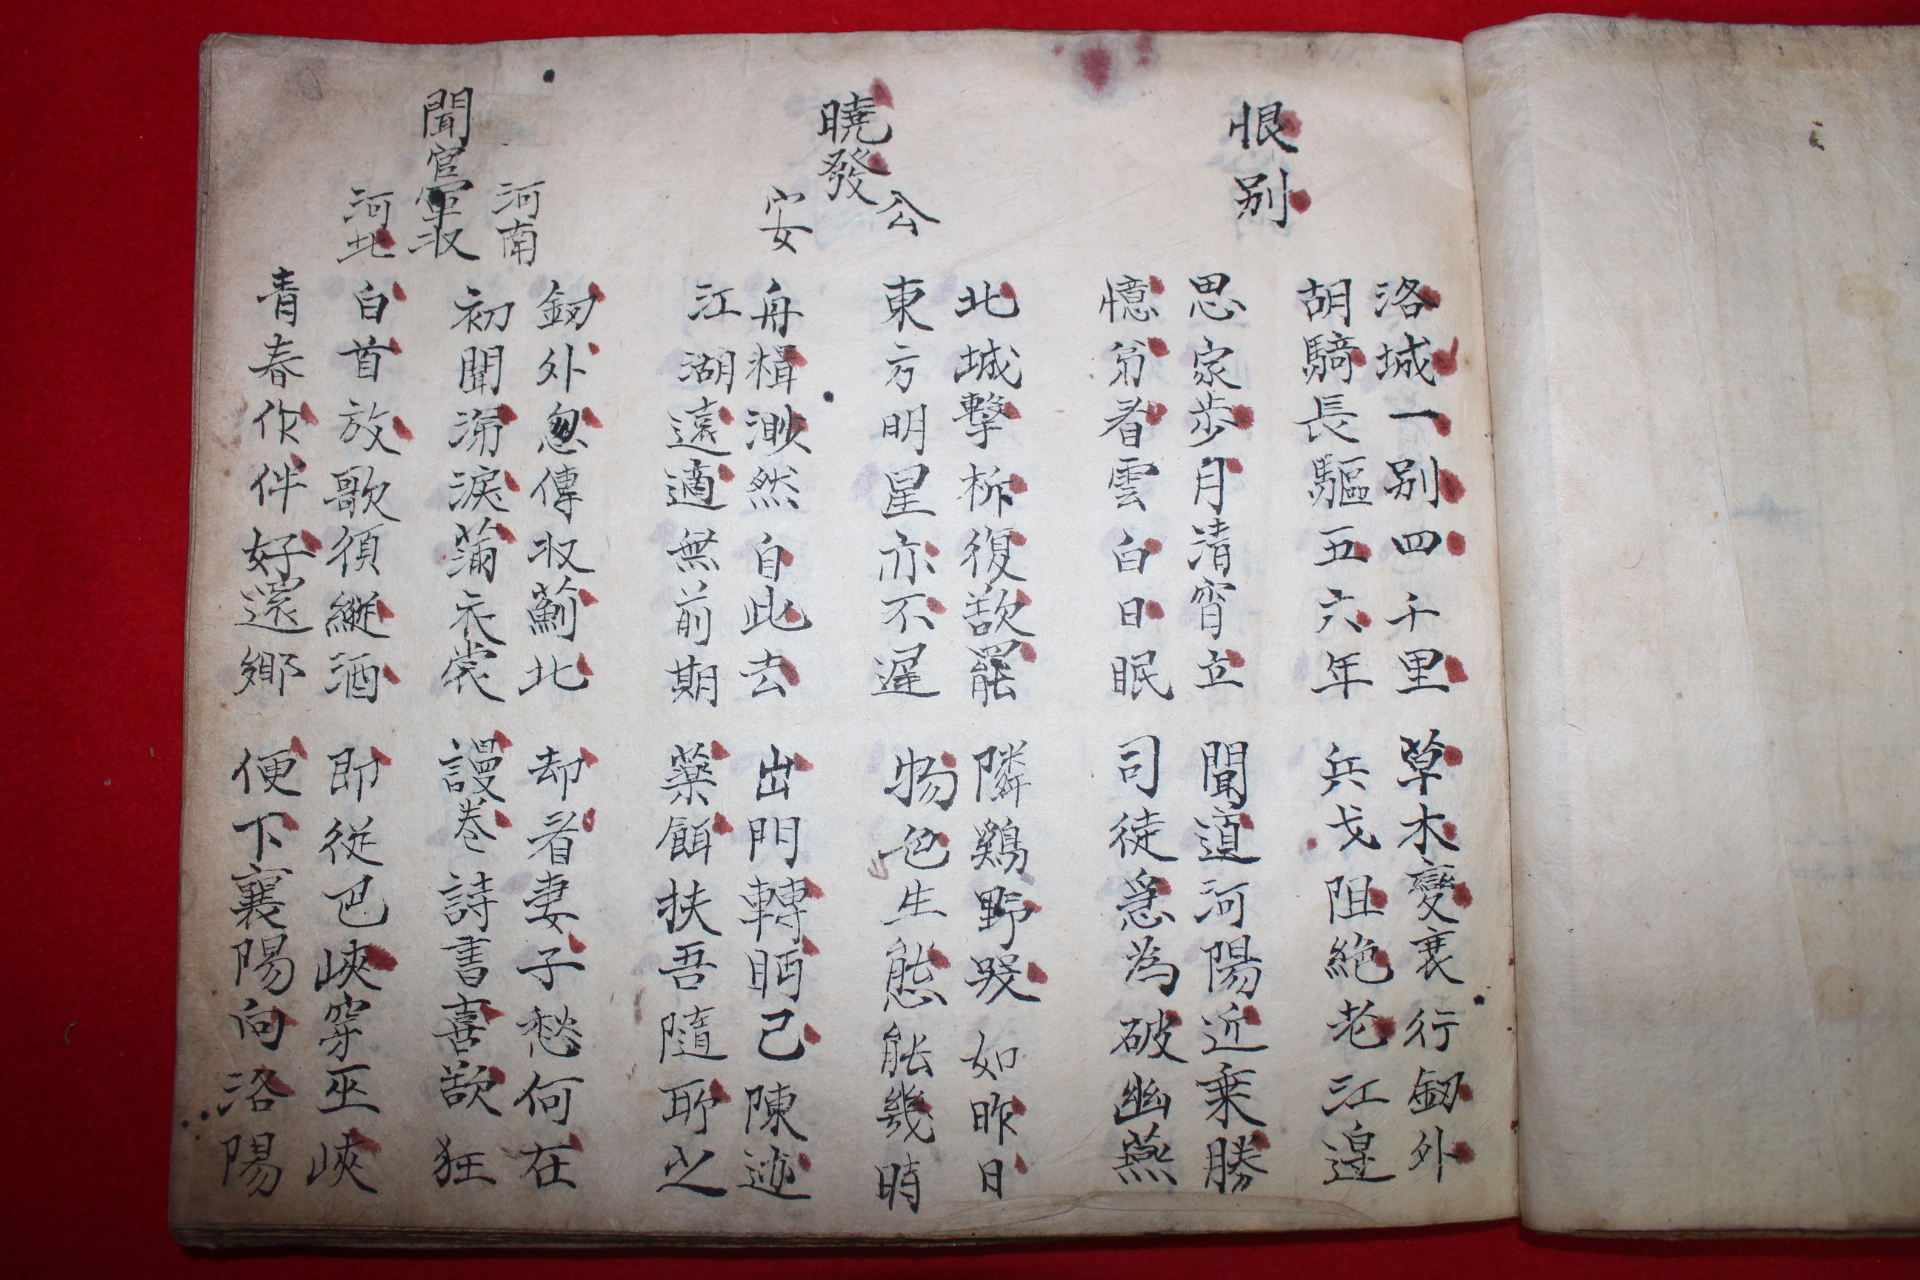 恨別
洛城一別四千里 草木變衰行釼外
胡騎長驅五六年 兵戈阻絶老江邉
思家步月淸宵立 聞道河陽近乗勝
憶弟看雲白日眠 司徒急為破幽燕
曉發公安
北城擊柝復欲罷 隣鷄野哭如昨日
東方明星亦不遲 物色生態能幾時
舟楫渺然自此去 出門轉眄已陳迹
江湖遠適無前期 藥餌扶吾隨所之
聞官軍收河南河北
釼外忽傳収薊北 却看妻子愁何在
初聞涕淚蒲衣裳 謾卷詩書喜欲狂
白首放歌須縱酒 即從巴峽穿巫峽
青春作伴好還鄉 便下襄陽向洛陽